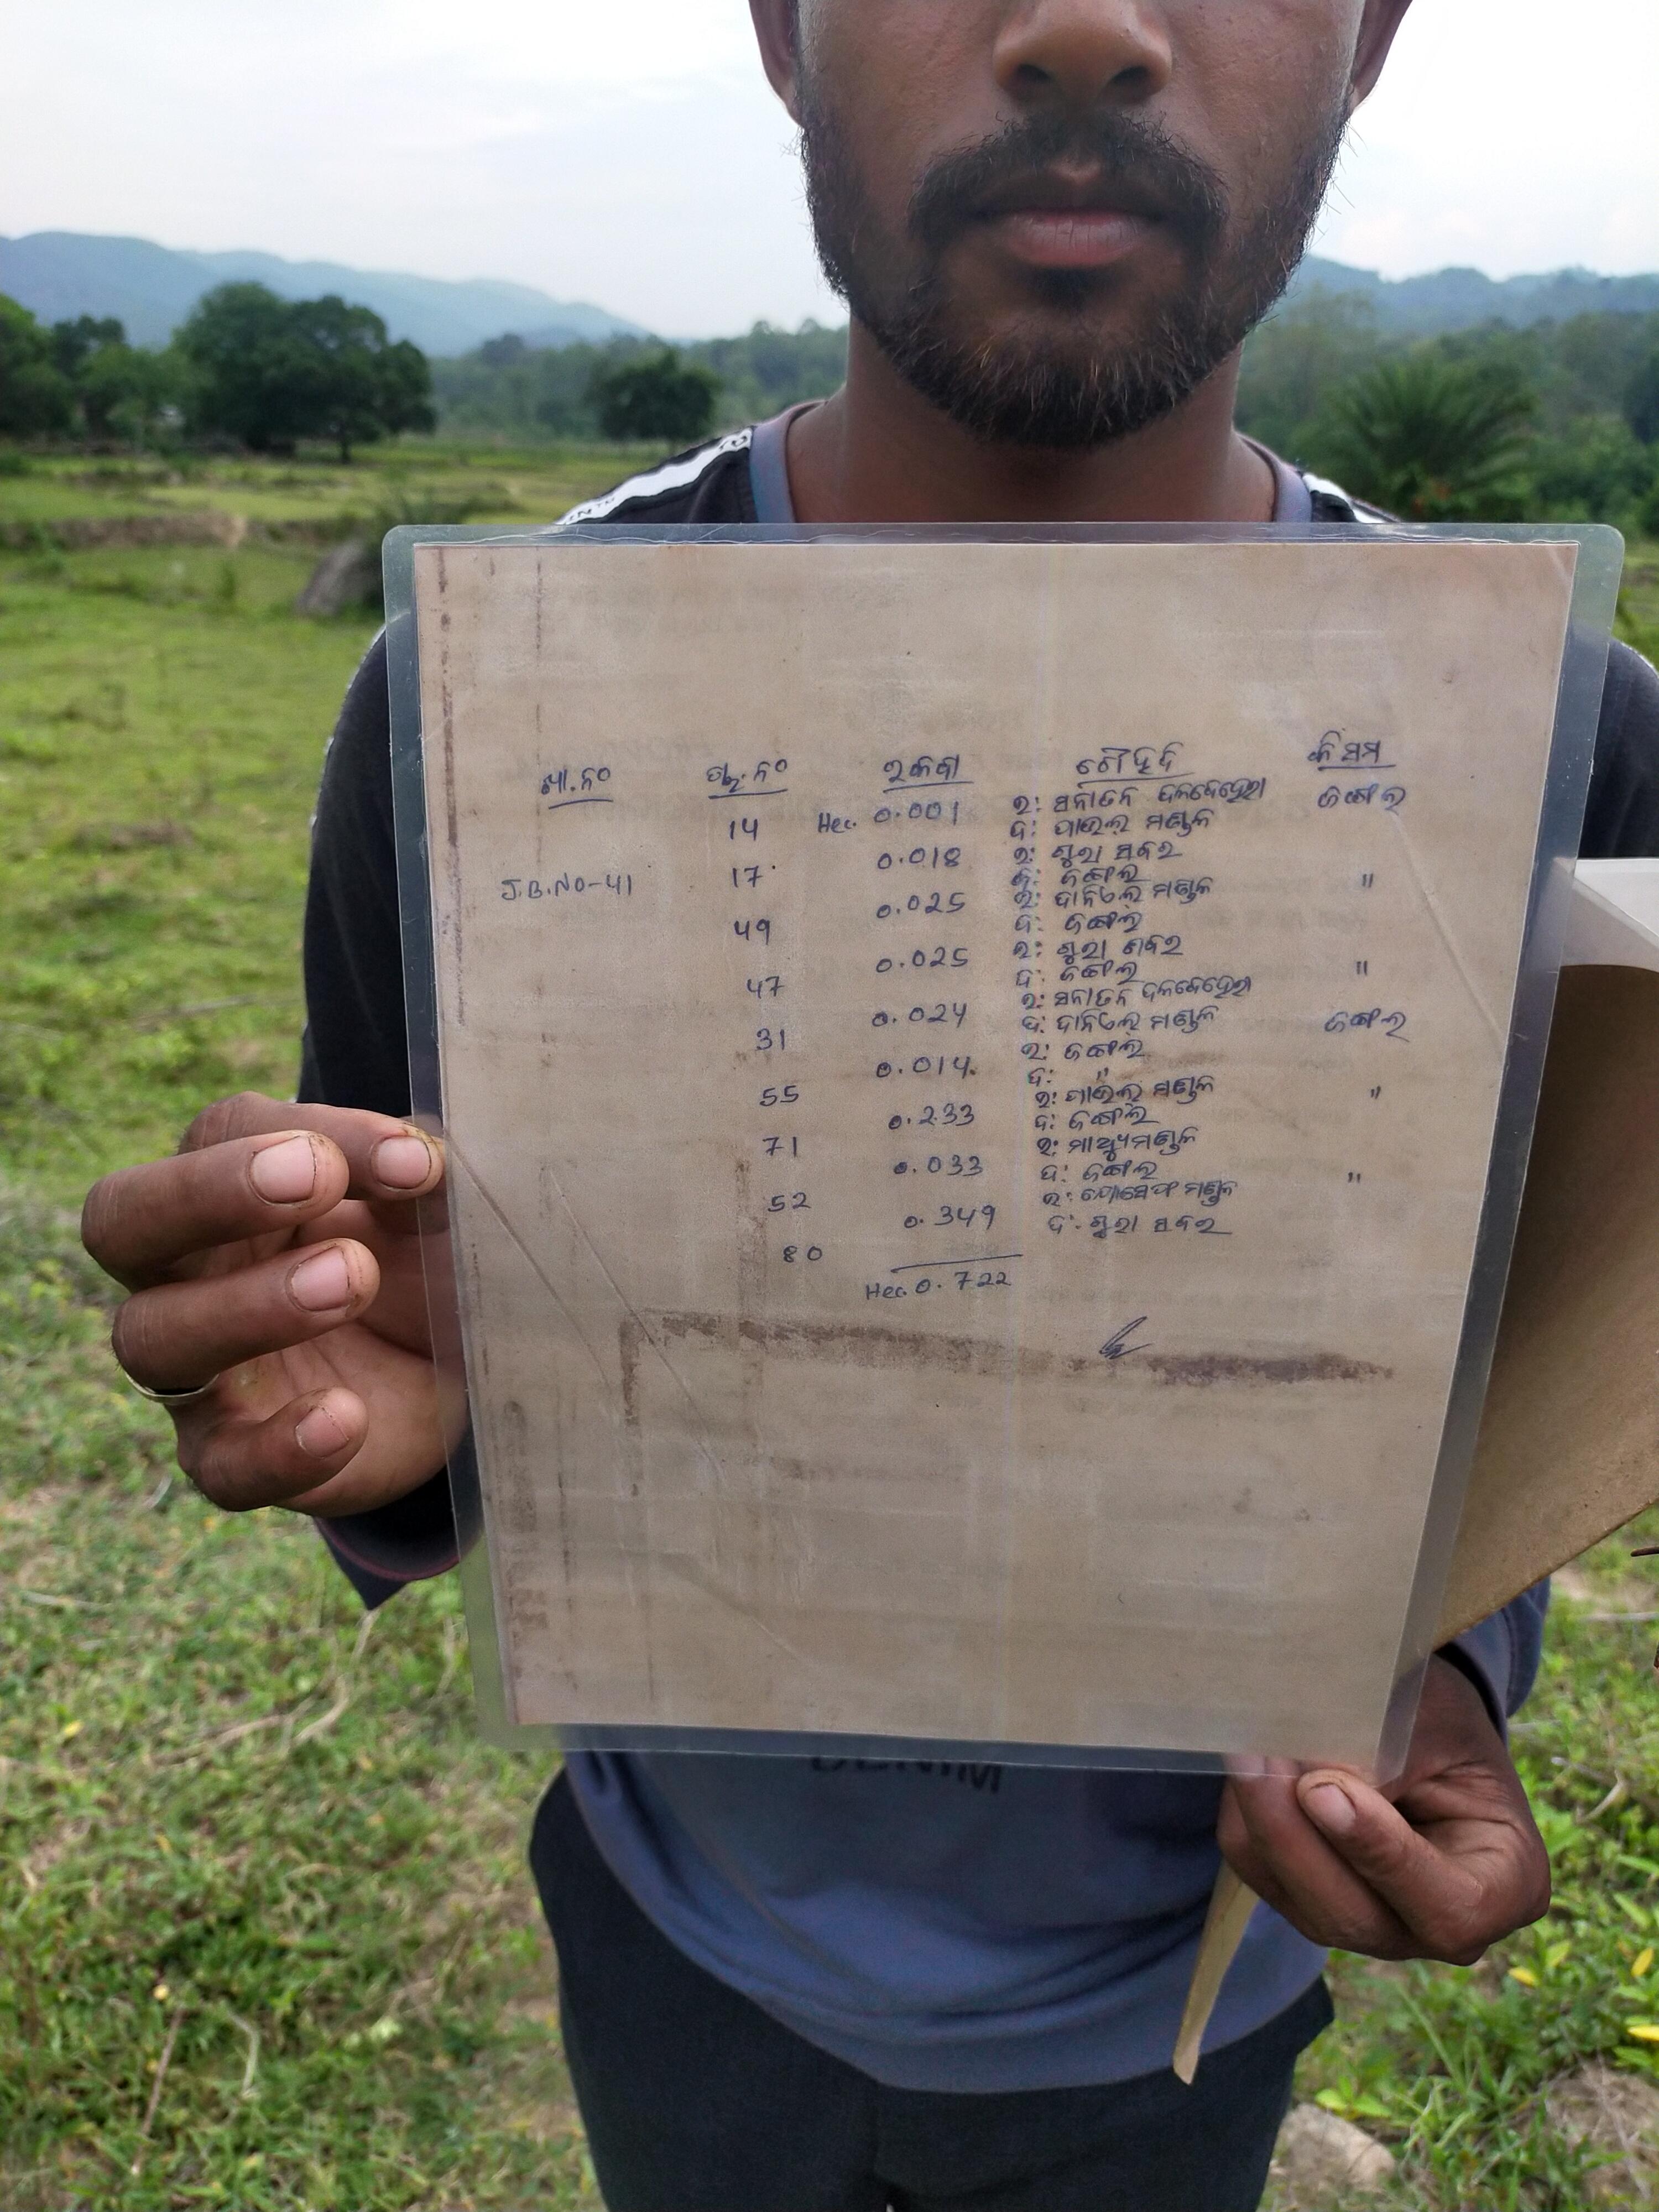 ଖା.ନଂ ପ୍ଲ.ନଂ ରକବା ଚୌହଦି କିସମ
14 Hec. 0.001 ଉ: ସନାତନ ଦଳବେହେରା ଜଙ୍ଗଲ
ଦ: ପାଉଲ ମଣ୍ଡଳ
J.B.NO-41 17 0.018 ଉ: ଗୁରା ସବର "
ଦ: ଜଙ୍ଗଲ
49 0.025 ଉ: ଦାନିଏଲ ମଣ୍ଡଳ
ଦ: ଜଙ୍ଗଲ
47 0.025 ଉ: ଗୁରା ଶବର "
ଦ: ଜଙ୍ଗଲ
31 0.024 ଉ: ସନାତନ ଦଳବେହେରା ଜଙ୍ଗଲ
ଦ: ଦାନିଏଲ ମଣ୍ଡଳ
55 0.014. ଉ: ଜଙ୍ଗଲ
ଦ: "
71 0.233 ଉ: ପାଉଲ ମଣ୍ଡଳ "
ଦ: ଜଙ୍ଗଲ
52 0.033 ଉ: ମାଥ୍ୟୁ ମଣ୍ଡଳ
ଦ: ଜଙ୍ଗଲ
80 0.349 ଉ: ଯୋସେଫ ମଣ୍ଡଳ "
ଦ: ଗୁରା ସବର
Hec. 0.722
DENIM